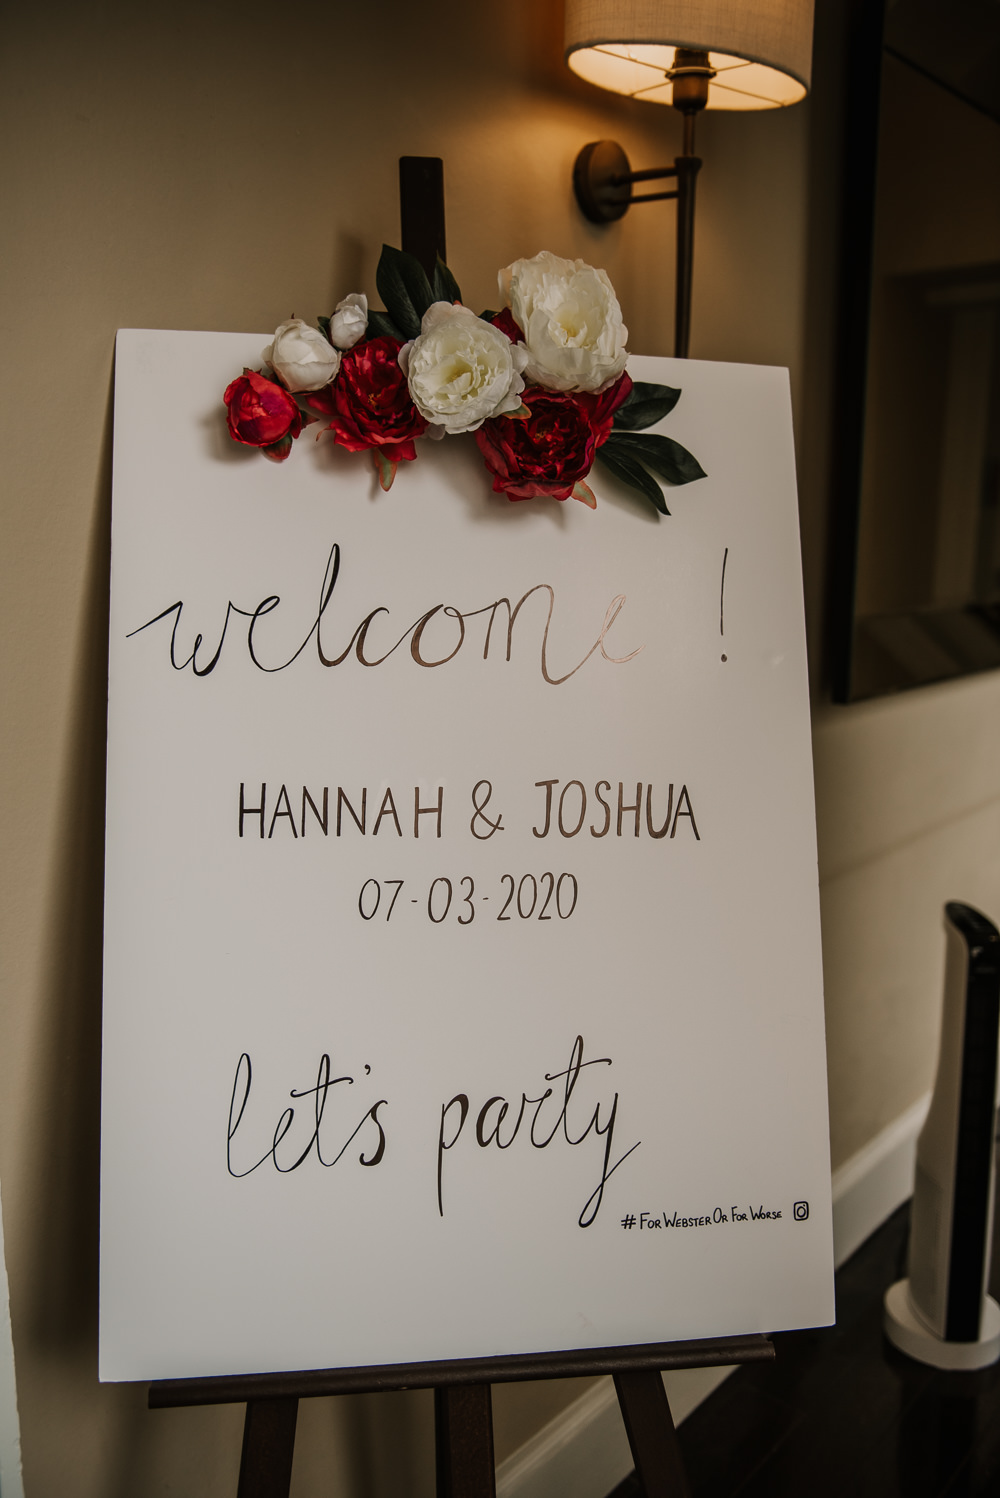 welcome !
HANNAH & JOSHUA
07-03-2020
let's party
#FORWEBSTERORFORWORSE